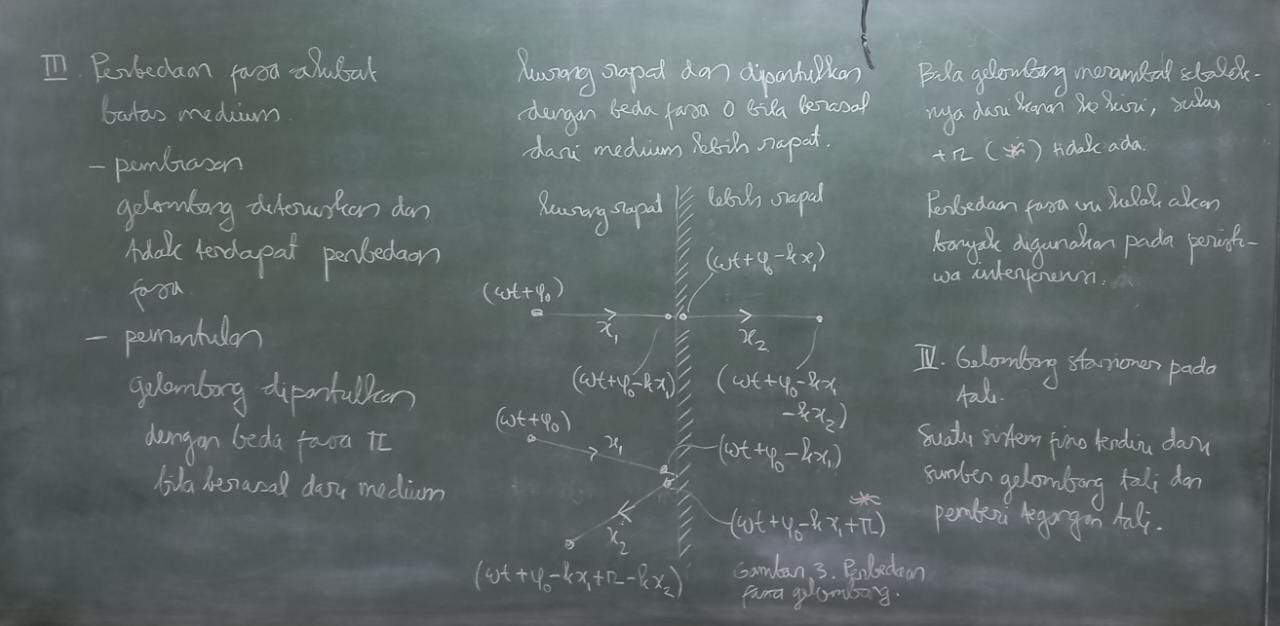 III. Perbedaan fasa akibat
batas medium
- pembiasan
gelombang diteruskan dan
tidak terdapat perbedaan
fasa.
- pemantulan
gelombang dipantulkan
dengan beda fasa π
bila berasal dari medium
kurang rapat dan dipantulkan
dengan beda fasa 0 bila berasal
dari medium lebih rapat.
kurang rapat
lebih rapat
(ωt+φ₀-kx₁)
(ωt+φ₀)
x₁
x₂
(ωt+φ₀-kx₁)
(ωt+φ₀-kx₁
-kx₂)
(ωt+φ₀)
x₁
(ωt+φ₀-kx₁)
x₂
*
(ωt+φ₀-kx₁+π)
(ωt+φ₀-kx₁+π-kx₂)
Gambar 3. Perbedaan
fasa gelombang.
Bila gelombang merambat sebalik-
nya dari kanan ke kiri, suku
+π (*) tidak ada.
Perbedaan fasa ini kelak akan
banyak digunakan pada peristi-
wa interferensi.
IV. Gelombang stasioner pada
tali.
Suatu sistem fisis terdiri dari
sumber gelombang tali dan
pemberi tegangan tali.